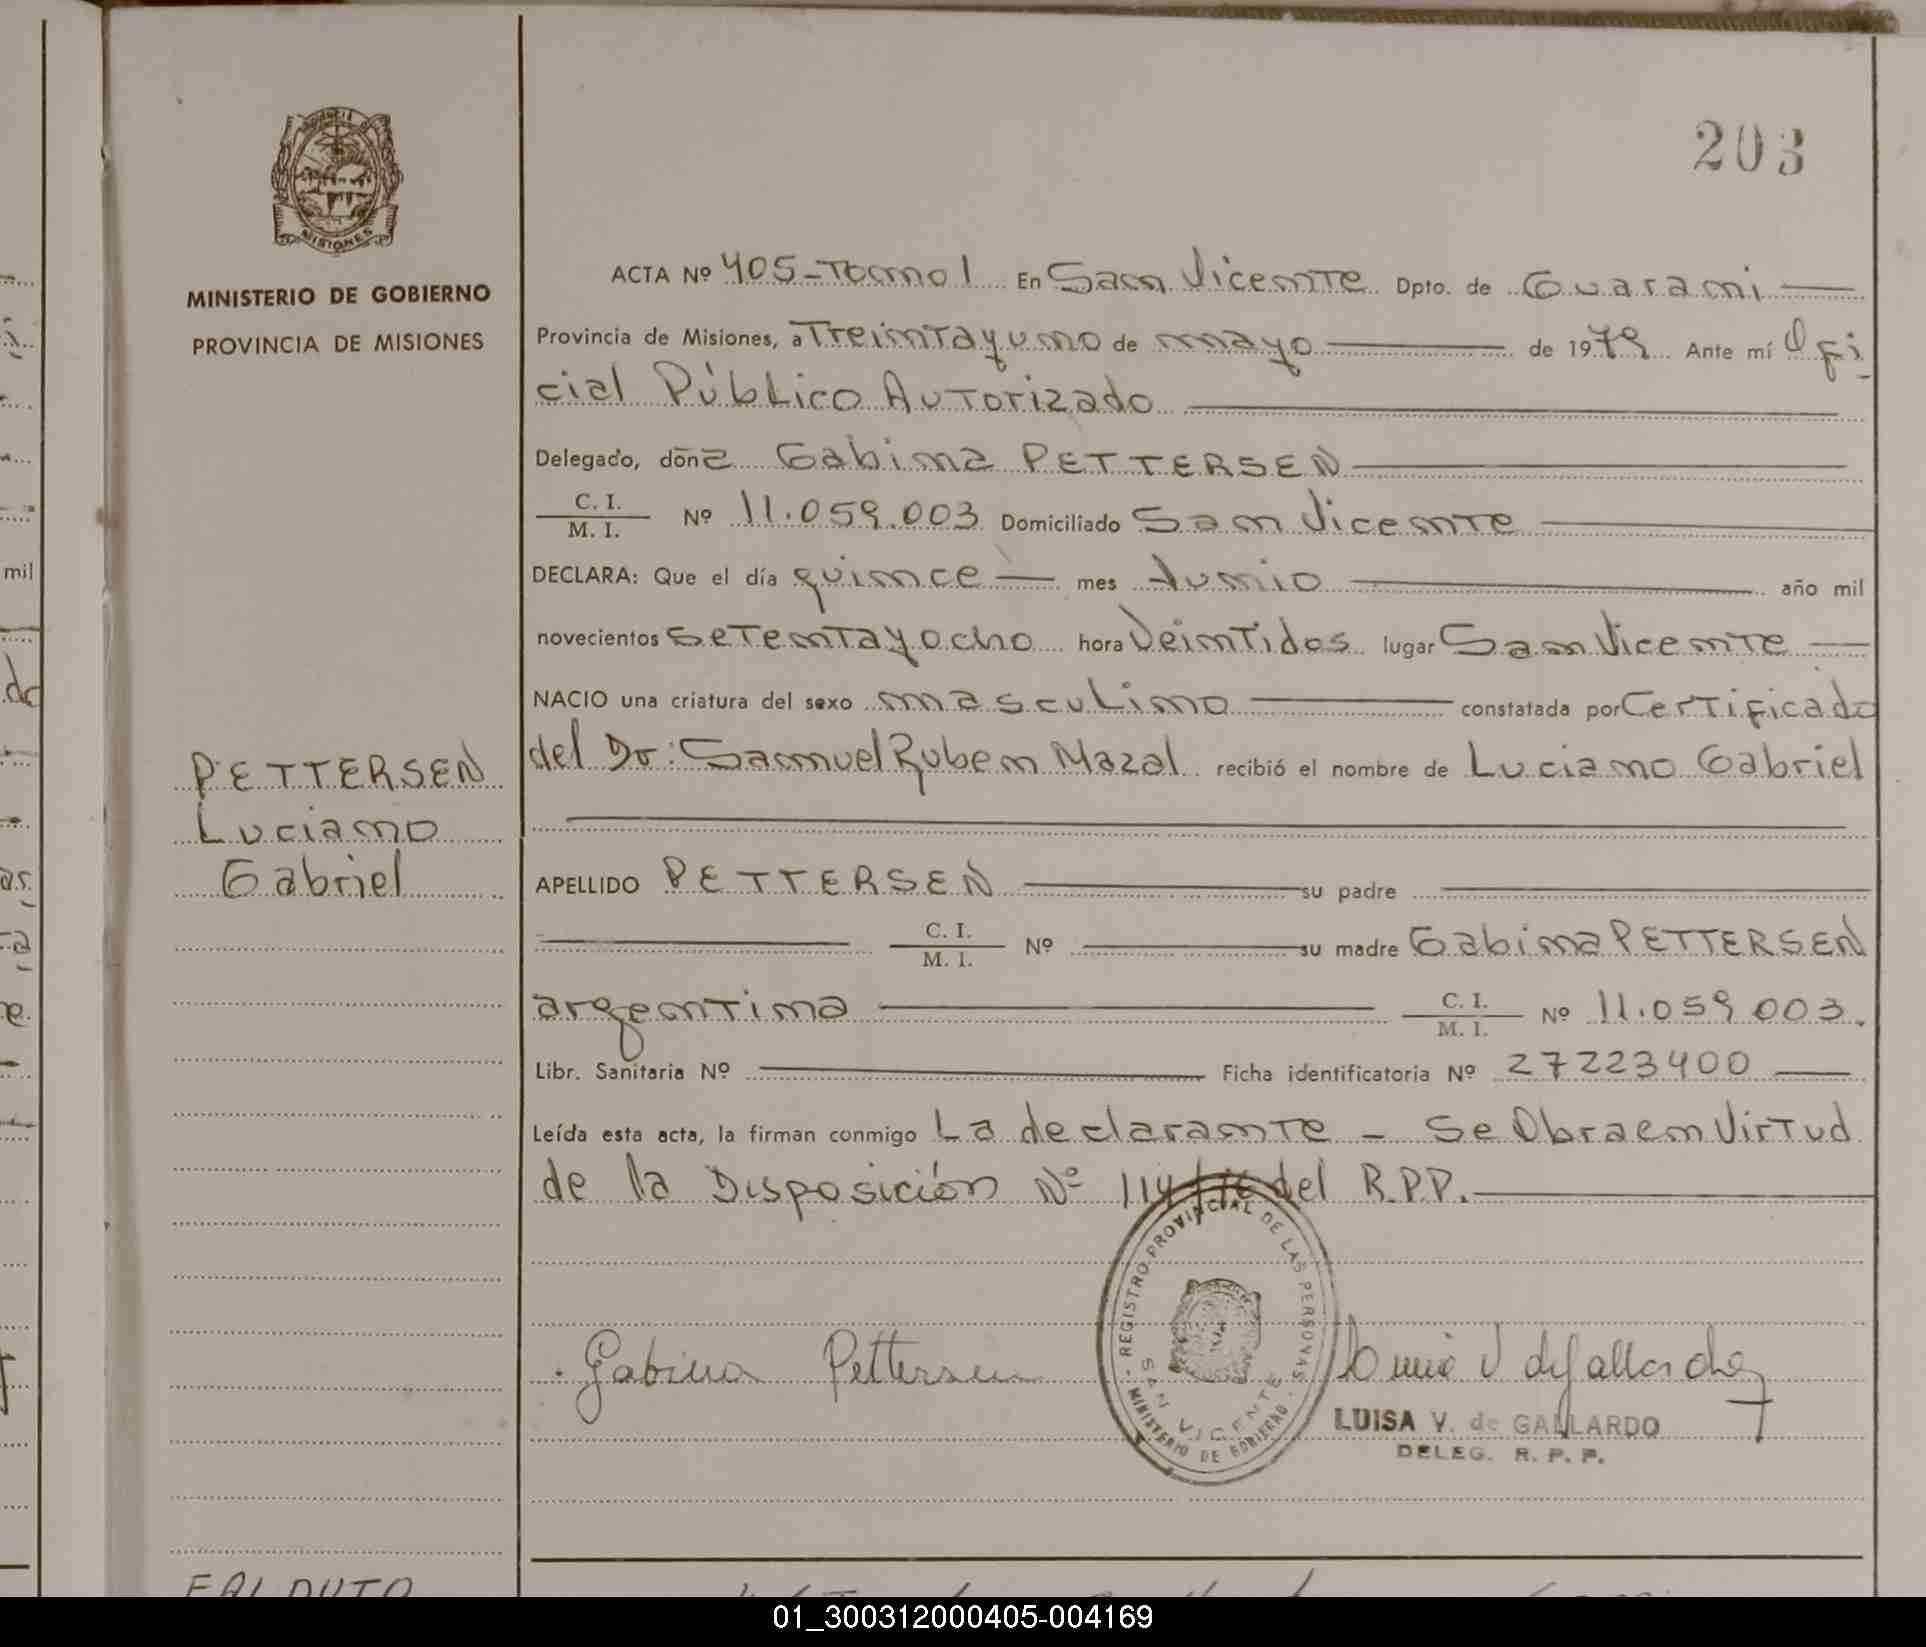 203
MINISTERIO DE GOBIERNO
PROVINCIA DE MISIONES
MISIONES
ACTA Nº 405-Tomo I En San Vicente Dpto. de Guaraní
Provincia de Misiones, a Treintayuno de mayo de 1979 Ante mí Ofi
cial Público Autorizado
Delegado, doña Gabina PETTERSEN
C. I.
M. I. Nº 11.059.003 Domiciliado San Vicente
DECLARA: Que el día quince mes Junio año mil
novecientos setentayocho hora Veintidos lugar San Vicente
NACIO una criatura del sexo masculino constatada por Certificado
del Dr: Samuel Ruben Mazal recibió el nombre de Luciano Gabriel
PETTERSEN
Luciano
Gabriel
APELLIDO PETTERSEN su padre
C. I.
M. I. Nº su madre Gabina PETTERSEN
argentina C. I.
M. I. Nº 11.059 003.
Libr. Sanitaria Nº Ficha identificatoria Nº 27223400
Leída esta acta, la firman conmigo La declarante - Se Obra en Virtud
de la Disposición Nº del R.P.P.
REGISTRO PROVINCIAL DE LAS PERSONAS
SAN VICENTE
MINISTERIO DE GOBIERNO
Gabina Pettersen
LUISA V. de GALLARDO
DELEG. R. P. P.
mil
01_300312000405-004169